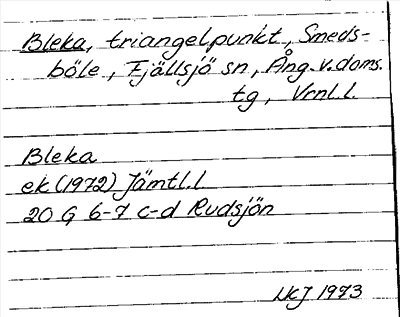 Bleka, triangelpunkt, Smeds-
böle, Fjällsjö sn, Ång. v. doms.
tg, Vrnl.l.
Bleka
ek (1972) Jämtl.l
20 G 6-7 c-d Rudsjön
1973